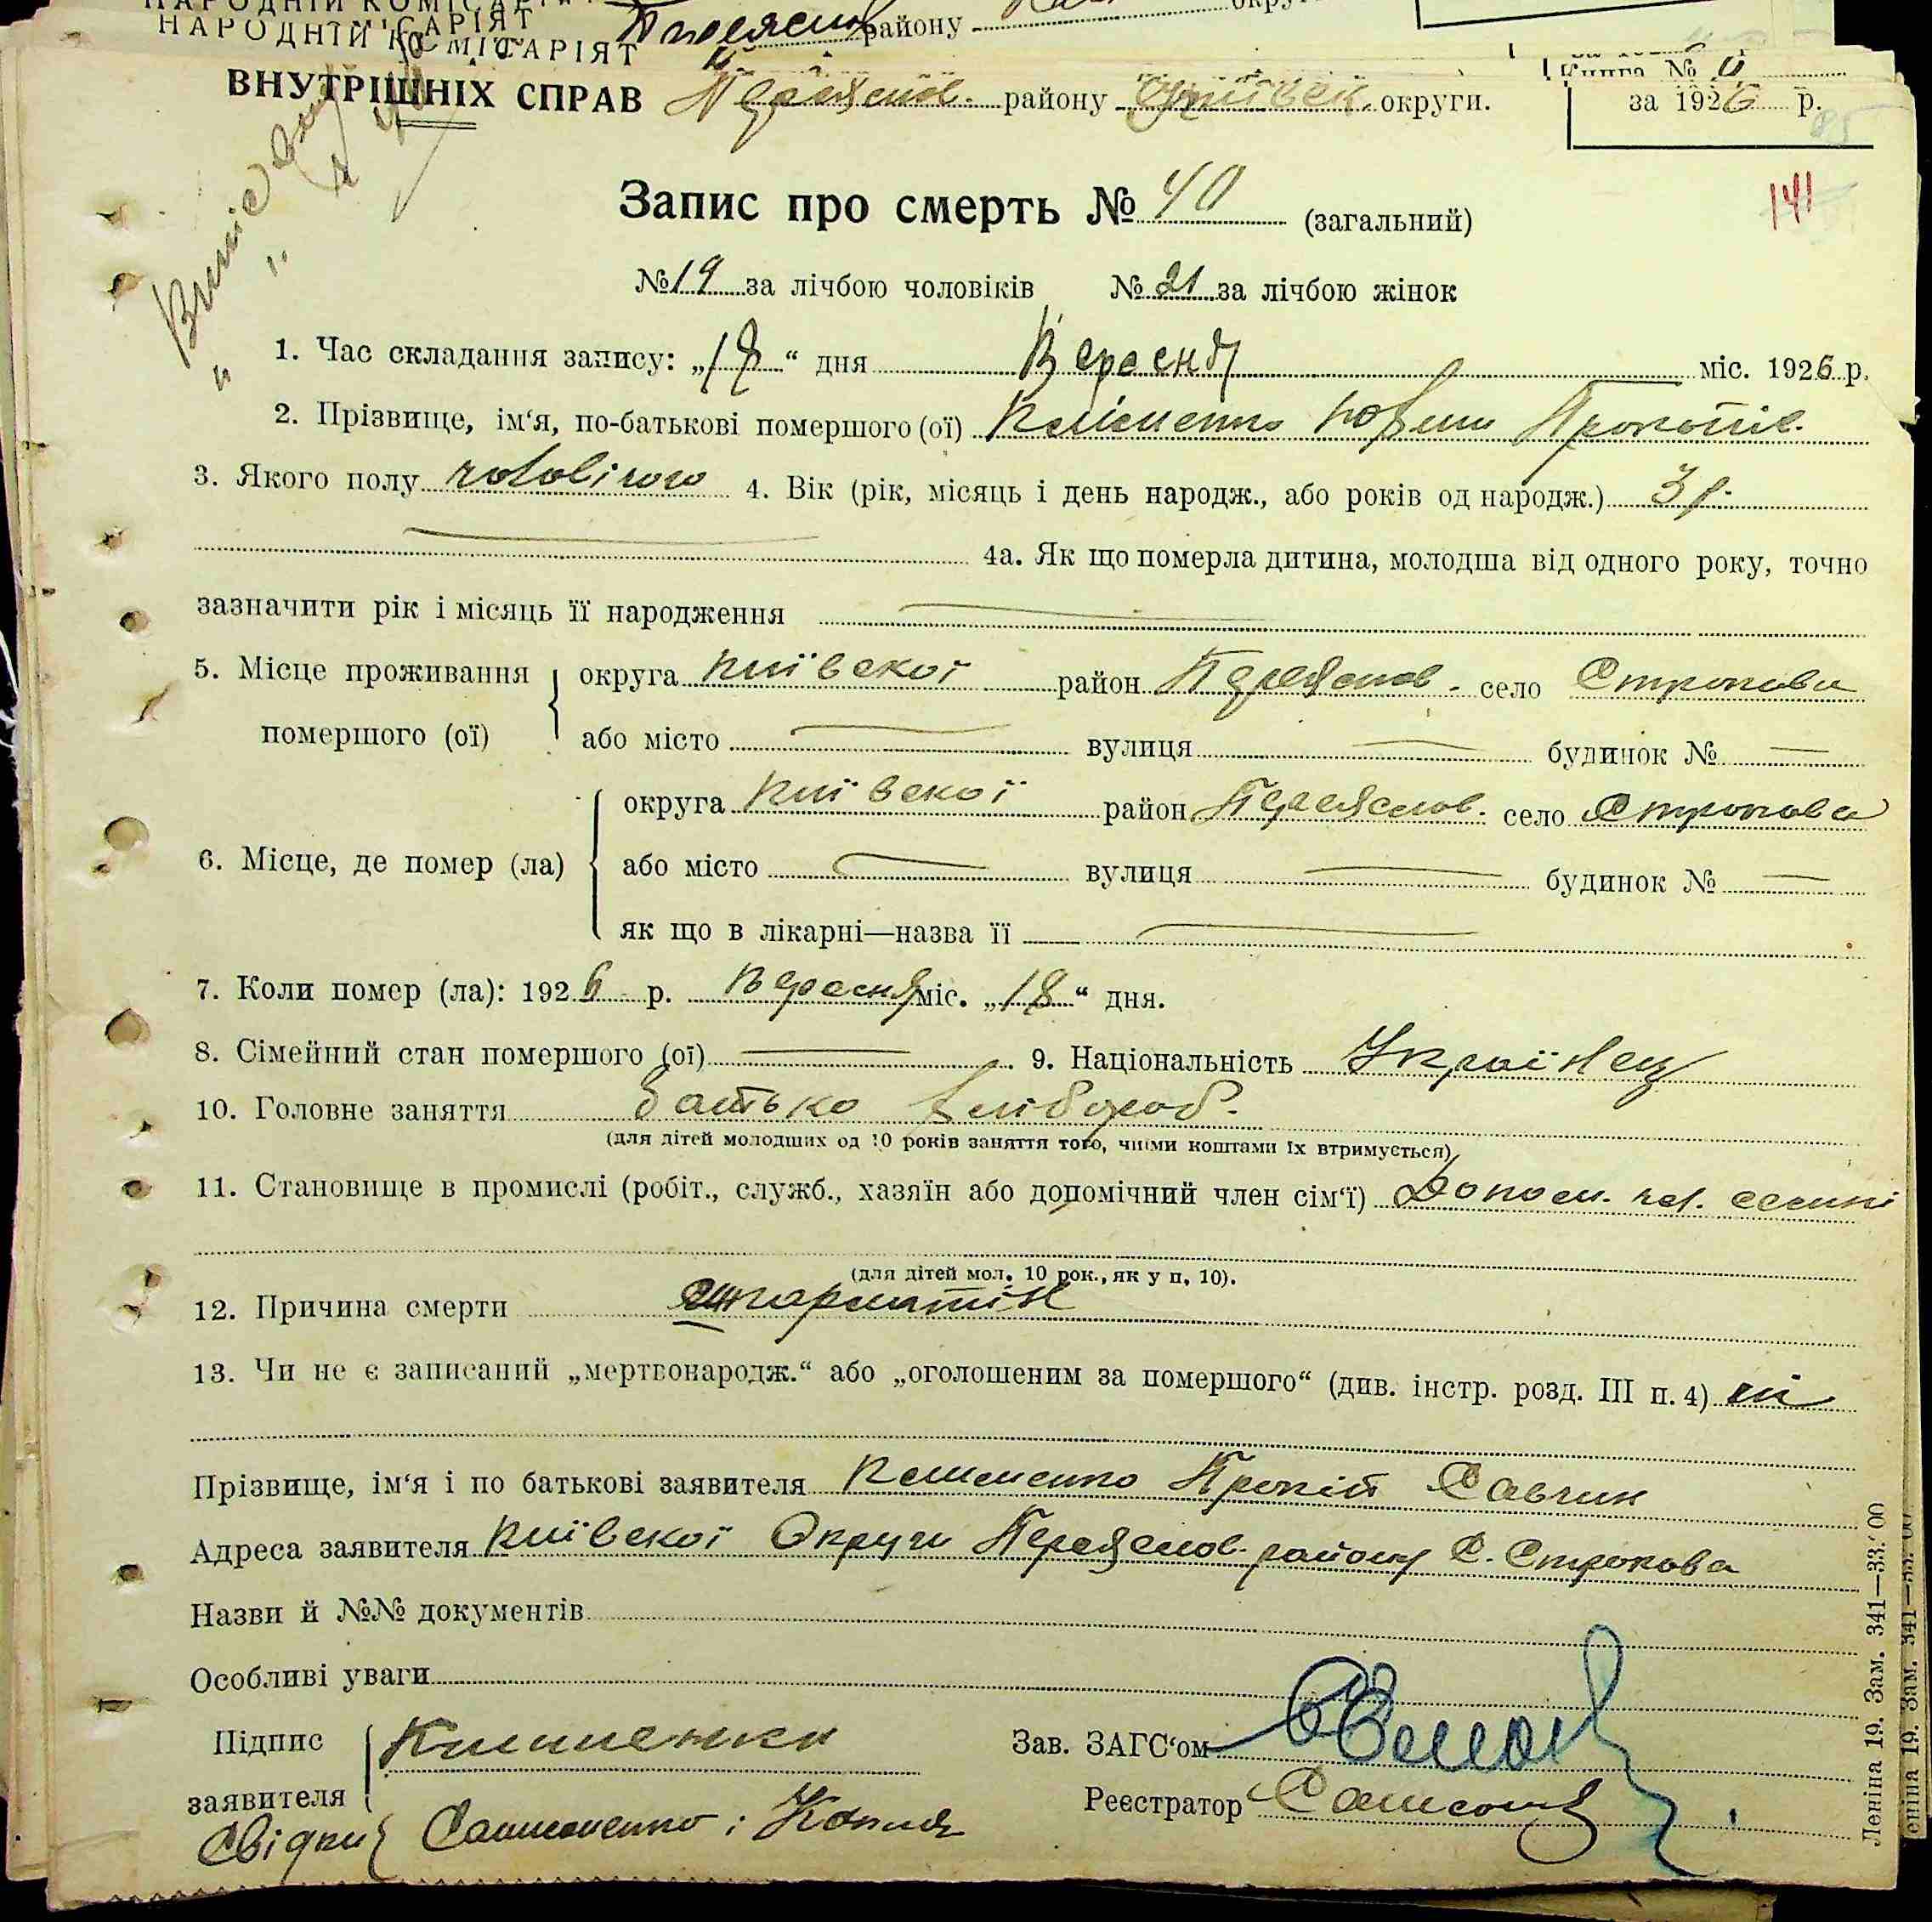 НАРОДНІЙ КОМІСАРІЯТ
району
НАРОДНІЙ КОМІСАРІЯТ
Книга №
ВНУТРІШНІХ СПРАВ Переяслов. району округи.
за 1926 р.
85
141
Запис про смерть № 40 (загальний)
№ 19 за лічбою чоловіків № 21 за лічбою жінок
1. Час складання запису: „18“ дня Вересня міс. 1926 р.
2. Прізвище, ім'я, по-батькові помершого (ої) Прокопів.
3. Якого полу чоловічого 4. Вік (рік, місяць і день народж., або років од народж.) 3 р.
4а. Як що померла дитина, молодша від одного року, точно
зазначити рік і місяць її народження
5. Місце проживання помершого (ої) округа Київської район Переяслов. село Строкова
або місто вулиця будинок №
6. Місце, де помер (ла) округа Київської район Переяслов. село Строкова
або місто вулиця будинок №
як що в лікарні—назва її
7. Коли помер (ла): 1926 р. Вересня міс. „18“ дня.
8. Сімейний стан помершого (ої) 9. Національність Українец
10. Головне заняття батько хлібороб.
(для дітей молодших од 10 років заняття того, чиїми коштами їх втримується)
11. Становище в промислі (робіт., служб., хазяїн або допомічний член сім'ї) Допом. чл. семії
(для дітей мол. 10 рок., як у п. 10).
12. Причина смерти шкарлатін
13. Чи не є записаний „мертвонародж.“ або „оголошеним за помершого“ (див. інстр. розд. III п. 4) ні
Прізвище, ім'я і по батькові заявителя Прокіп Савчин
Адреса заявителя Київської Округи Переяслов. району С. Строкова
Назви й №№ документів
Особливі уваги
Підпис заявителя
Зав. ЗАГС'ом
Реєстратор
Свідки Самоненко і
Леніна 19. Зам. 341—33.' 00
еніна 19. Зам. 341—33. 00